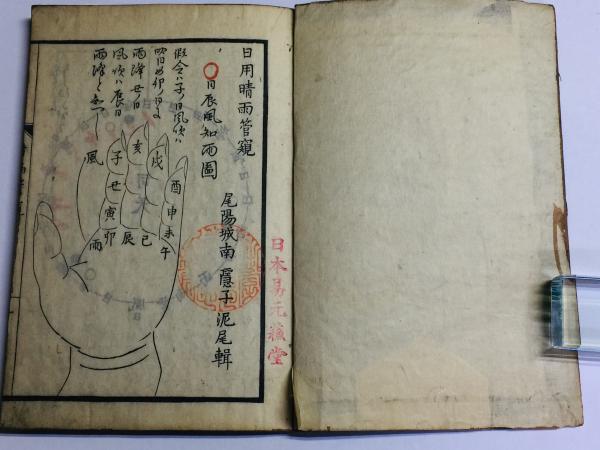 日用晴雨管窺
尾陽城南 隱子泥尾輯
〇日辰風知雨圖
假令ハ子ノ日風吹ハ
雨降
風吹ハ辰日
雨降
風
子
丑
寅
卯
雨
亥
辰
戌
巳
酉
申
未
午
日本易元蘓堂